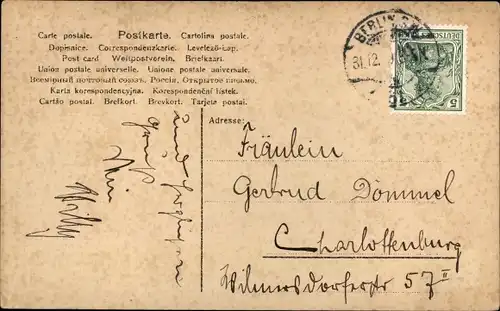 Carte postale. Postkarte. Cartolina postale.
Dopisnice. Correspondenzkarte. Levelező-Lap.
Post card Weltpostverein. Briefkaart.
Union postale universelle. Unione postale universale.
Всемірный почтовый союзъ. Россія. Открытое письмо.
Karta korespondencyjna. Korespondenční lístek.
Cartão postal. Brefkort. Brevkort. Tarjeta postal.
BERLIN
31.12.
DEUTSCHES
5
Adresse:
Fräulein
Gertrud Dömmel
Charlottenburg
Wilmersdorferstr 57 II
und
Gruß
Dein
Willy